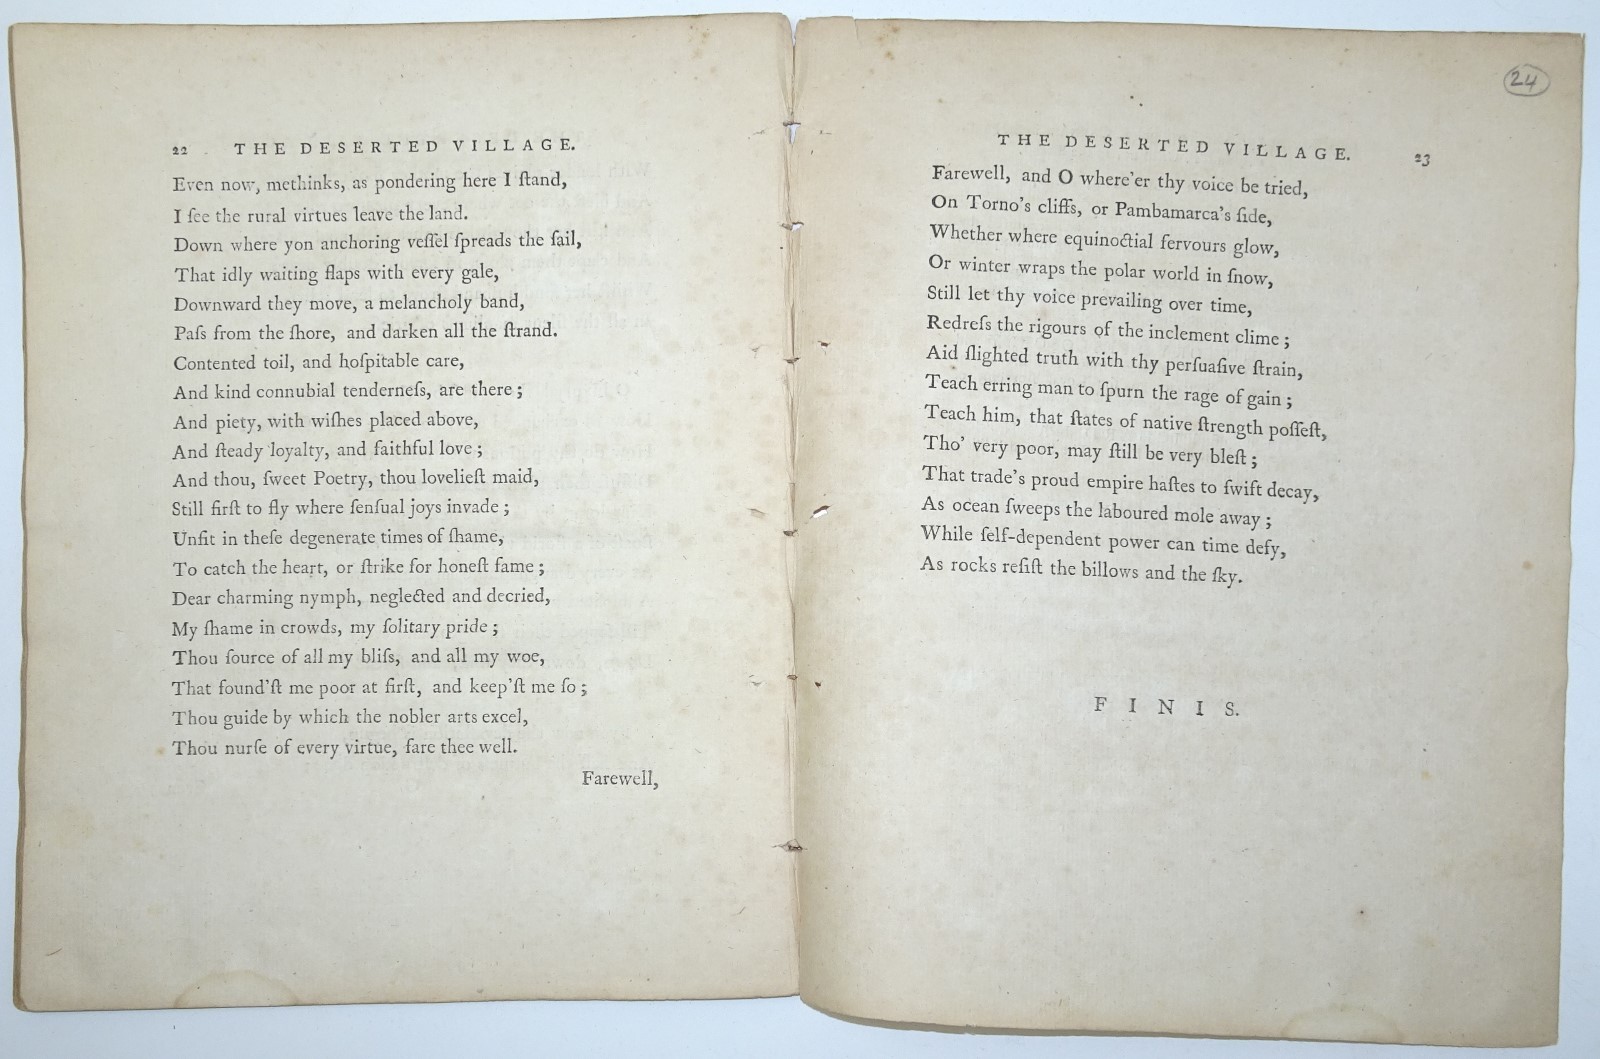 22 THE DESERTED VILLAGE.
Even now, methinks, as pondering here I ſtand,
I ſee the rural virtues leave the land.
Down where yon anchoring veſſel ſpreads the ſail,
That idly waiting flaps with every gale,
Downward they move, a melancholy band,
Paſs from the ſhore, and darken all the ſtrand.
Contented toil, and hoſpitable care,
And kind connubial tenderneſs, are there ;
And piety, with wiſhes placed above,
And ſteady loyalty, and faithful love ;
And thou, ſweet Poetry, thou lovelieſt maid,
Still firſt to fly where ſenſual joys invade ;
Unfit in theſe degenerate times of ſhame,
To catch the heart, or ſtrike for honeſt fame ;
Dear charming nymph, neglected and decried,
My ſhame in crowds, my ſolitary pride ;
Thou ſource of all my bliſs, and all my woe,
That found'ſt me poor at firſt, and keep'ſt me ſo ;
Thou guide by which the nobler arts excel,
Thou nurſe of every virtue, fare thee well.
Farewell,
24
THE DESERTED VILLAGE. 23
Farewell, and O where'er thy voice be tried,
On Torno's cliffs, or Pambamarca's ſide,
Whether where equinoctial fervours glow,
Or winter wraps the polar world in ſnow,
Still let thy voice prevailing over time,
Redreſs the rigours of the inclement clime ;
Aid ſlighted truth with thy perſuaſive ſtrain,
Teach erring man to ſpurn the rage of gain ;
Teach him, that ſtates of native ſtrength poſſeſt,
Tho' very poor, may ſtill be very bleſt ;
That trade's proud empire haſtes to ſwift decay,
As ocean ſweeps the laboured mole away ;
While ſelf-dependent power can time defy,
As rocks reſiſt the billows and the ſky.
FINIS.